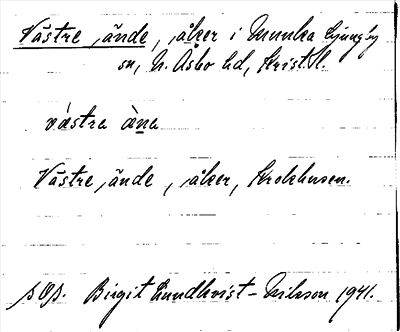 Västre ände, åker i Munka Ljungby
sn, N. Åsbo hd, Krist. l.
västra àna
Västre ände, åker, Krokhusen.
Birgit Lundkvist-Nilsson 1941.